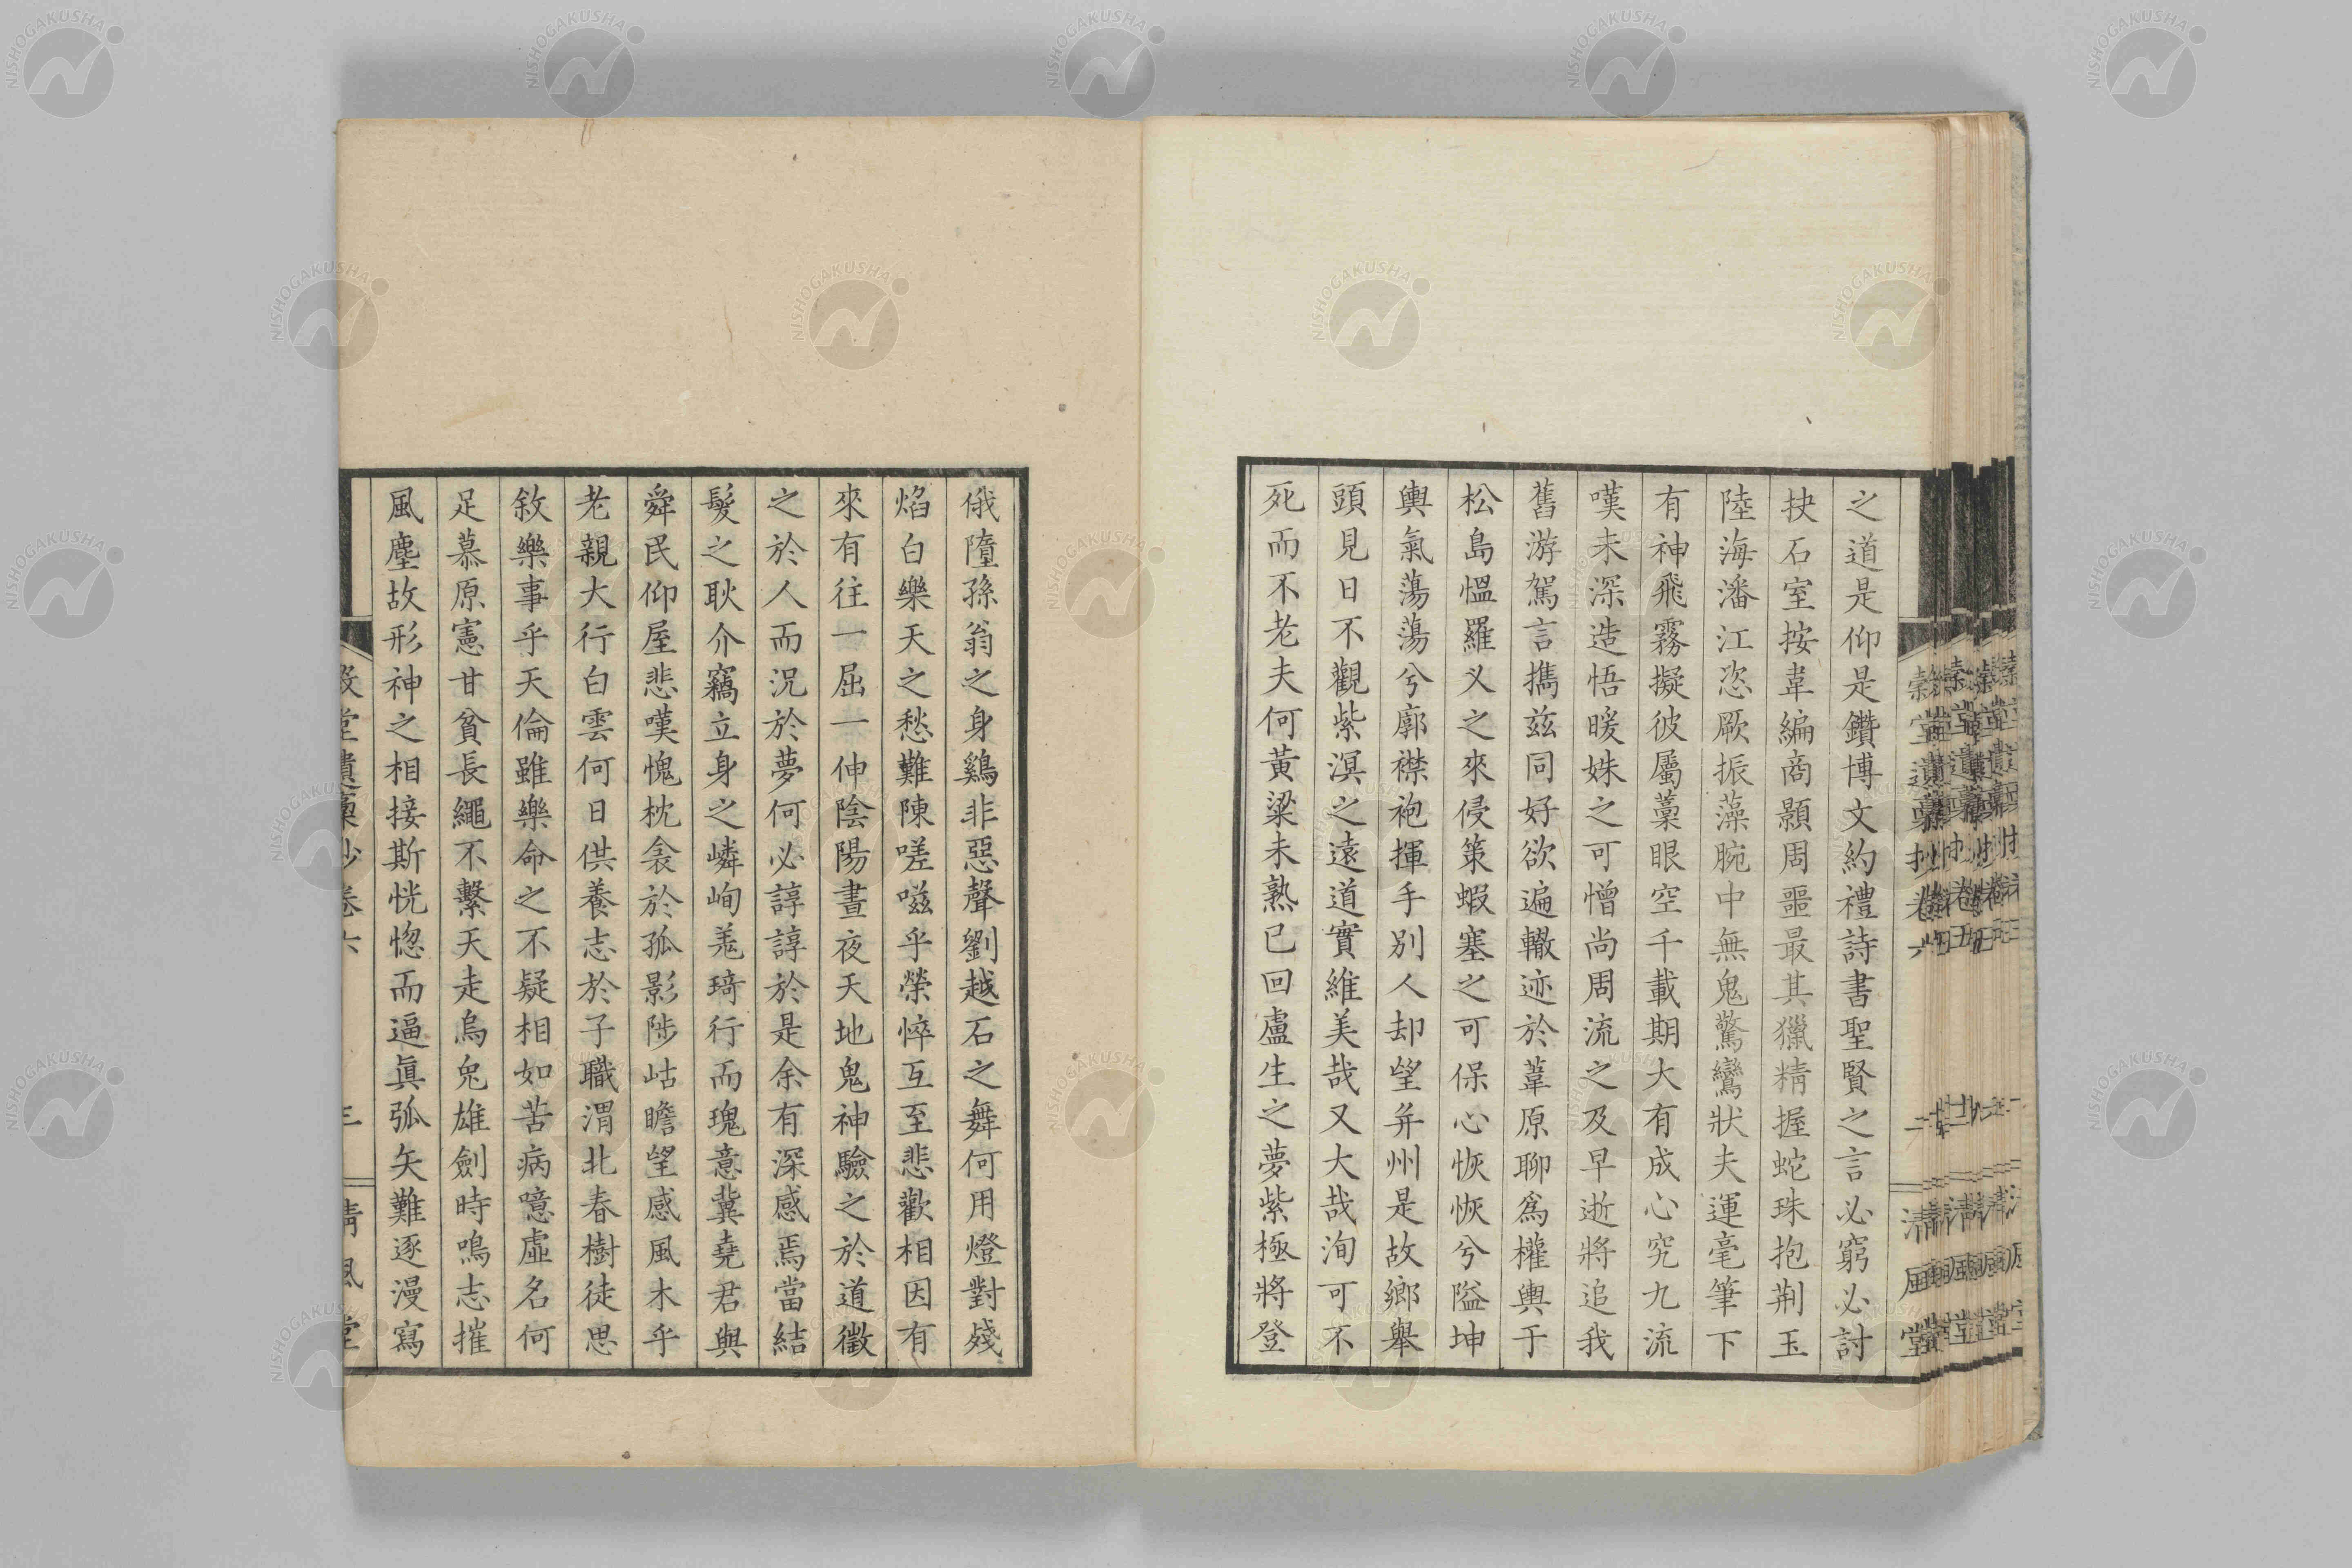 之道是仰是鑽博文約禮詩書聖賢之言必窮必討
抉石室按韋編商顥周噩最其獵精握蛇珠抱荆玉
陸海潘江恣厥振藻腕中無鬼驚鸞狀夫運毫筆下
有神飛霧擬彼屬藁眼空千載期大有成心究九流
嘆未深造悟暖姝之可憎尚周流之及早逝將追我
舊游駕言攜茲同好欲遍轍迹於葦原聊爲權輿于
松島慍羅乂之來侵策蝦塞之可保心恢恢兮隘坤
輿氣蕩蕩兮廓襟袍揮手別人却望幷州是故鄉舉
頭見日不觀紫溟之遠道實維美哉又大哉洵可不
死而不老夫何黃粱未熟已回盧生之夢紫極將登
俄墮孫翁之身鷄非惡聲劉越石之舞何用燈對殘
焰白樂天之愁難陳嗟嗞乎榮悴互至悲歡相因有
來有往一屈一伸陰陽晝夜天地鬼神驗之於道徵
之於人而況於夢何必諄諄於是余有深感焉當結
髮之耿介竊立身之嶙峋羌琦行而瑰意冀堯君與
舜民仰屋悲嘆愧枕衾於孤影陟岵瞻望感風木乎
老親大行白雲何日供養志於子職渭北春樹徒思
敘樂事乎天倫雖樂命之不疑相如苦病噫虛名何
足慕原憲甘貧長繩不繫天走烏兔雄劍時鳴志摧
風塵故形神之相接斯恍惚而逼眞弧矢難逐漫寫
穀堂遺藁抄卷六
二
清風堂
三
NISHOGAKUSHA